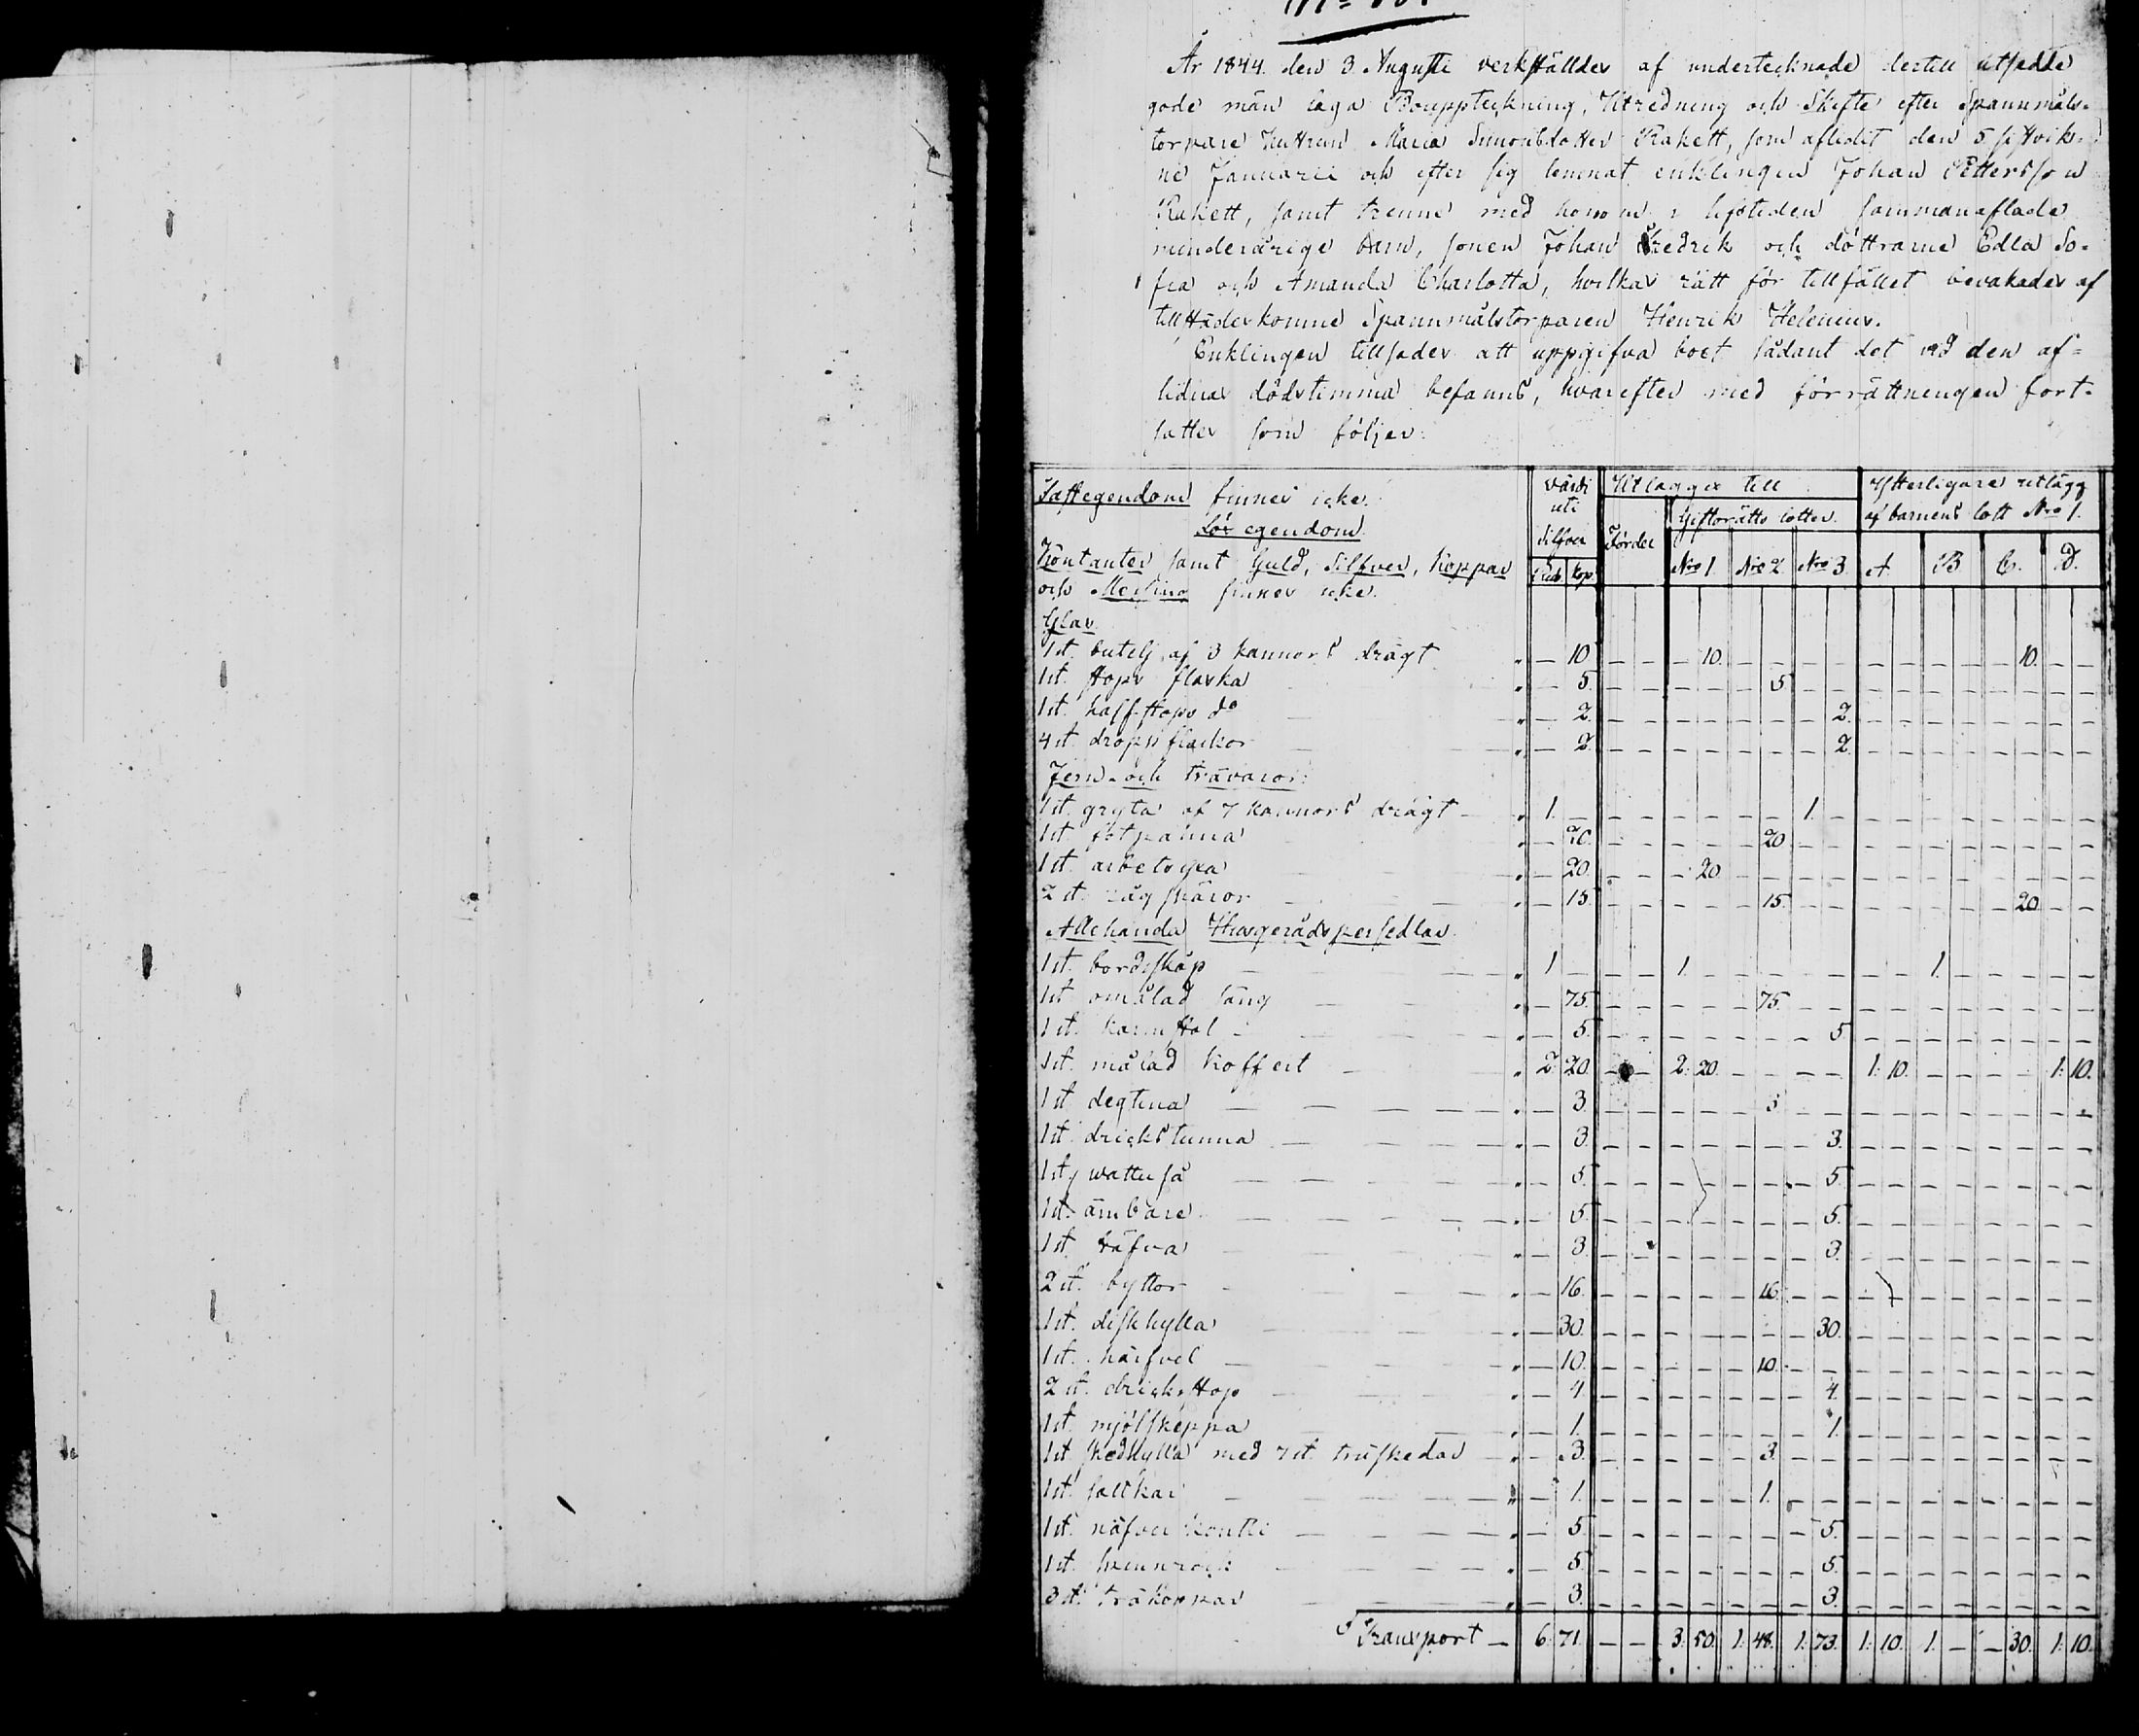 År 1844. den 3 Augusti verkställdes af undertecknade dertill utsedde
gode män laga Bouppteckning, Utredning och Skifte efter Spannmåls-
torpare Hustrun Maria Simonsdotter Rakett, som aflidit den 5 sistvik-
ne Januarii och efter sig lemnat enklingen Johan Pettersson
Rakett, samt trenne med honom i lifstiden sammanaflade
minderårige barn, sonen Johan Fredrik och döttrarne Edla So-
fia och Amanda Charlotta, hvilkas rätt för tillfället bevakades af
tillstädeskomne Spannmålstorparen Henrik Helenius.
Enklingen tillsades att uppgifva boet sådant det vid den af-
lidnas dödstimma befanns, hvarefter med förrättningen fort-
sattes som följer:
Fastegendom finnes icke. Värde uti Silfver Utlägges till Ytterligare utlägg
Giftorätts lotter. af barnens lott Nro 1.
Lös egendom.
Kontanter samt Guld, Silfver, Koppar Rub. Kop. Nro 1. Nro 2 Nro 3 A. B C. D.
och Messing finnes icke.
Glas
1 st. butelj af 3 kannors drägt 10 10. 10.
1 st. stops flaska 5. 5
1 st. half stops do 2. 2.
4 st. dropp flaskor 2. 2
Jern- och trävaror:
1 st. gryta af 7 kannors drägt 1. 1.
1 st. fotpanna 20. 20
1 st. arbetsyxa 20. 20
2 st. råg skäror 15. 15. 20
Allehanda Husgerådspersedlar
1 st. bordskåp 1 1. 1.
1 st. omålad säng 75. 75.
1 st. karmstol 5. 5
1 st. målad koffert 2. 20. 2. 20. 1. 10. 1. 10.
1 st. degtina 3. 3
1 st. drickstunna 3. 3.
1 st. wattu så 5. 5.
1 st. ämbare 5. 5.
1 st. stäfva 3. 3.
2 st. byttor 16. 16
1 st. diskhylla 30. 30.
1 st. härfvel 10. 10.
2 st. dricksstop 4 4.
1 st. mjölskeppa 1. 1.
1 st. skedhylla med 7 st. träskedar 3. 3.
1 st. saltkar 1. 1.
1 st. näfver kontti 5. 5.
1 st. 5. 5.
3 st. träkoppar 3. 3.
Transport 6. 71. 3. 50. 1. 48. 1. 73. 1. 10. 1. 30. 1. 10.